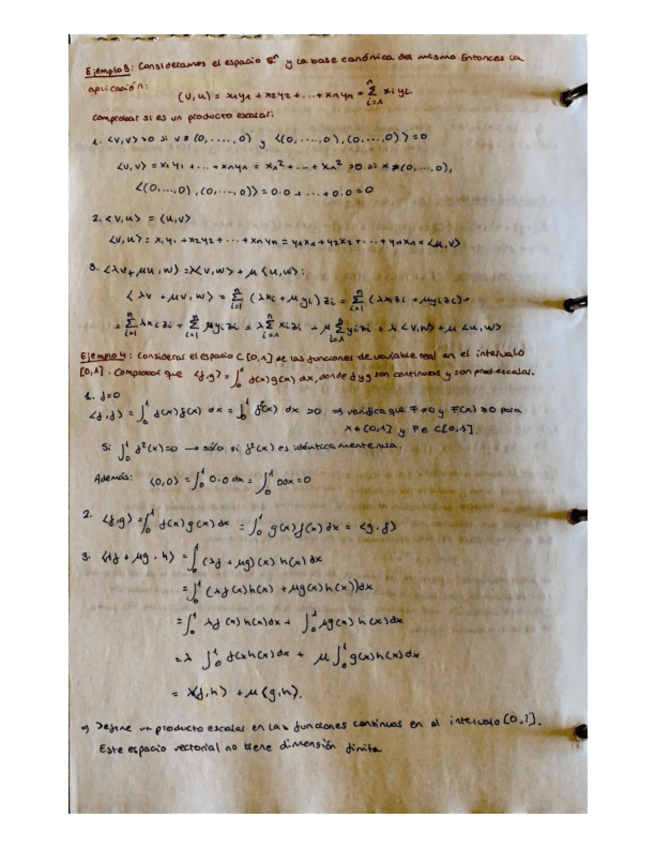 Ejemplo 3: Consideramos el espacio ℝⁿ y la base canónica del mismo. Entonces la
aplicación:
(v,u) = x₁y₁ + x₂y₂ + ... + xₙyₙ = ∑ᵢ₌₁ⁿ xᵢyᵢ.
Comprobar si es un producto escalar:
1. <v,v> >0 si v ≠ (0,.....,0) y <(0,....,0),(0.....,0)> = 0
<v,v> = x₁y₁ + ... + xₙyₙ = x₁² + ... + xₙ² >0 si x ≠ (0,...,0),
<(0,...,0),(0,...,0)> = 0·0 + ... + 0·0 = 0
2. <v,u> = <u,v>
<v,u> = x₁y₁ + x₂y₂ + ... + xₙyₙ = y₁x₁ + y₂x₂ + ... + yₙxₙ = <u,v>
3. <λv + μu, w> = λ<v,w> + μ<u,w>:
<λv + μv, w> = ∑ᵢ₌₁ⁿ (λxᵢ + μyᵢ)zᵢ = ∑ᵢ₌₁ⁿ (λxᵢzᵢ + μyᵢzᵢ) =
= ∑ᵢ₌₁ⁿ λxᵢzᵢ + ∑ᵢ₌₁ⁿ μyᵢzᵢ = λ∑ᵢ₌₁ⁿ xᵢzᵢ + μ∑ᵢ₌₁ⁿ yᵢzᵢ = λ<v,w> + μ<u,w>
Ejemplo 4: Considerar el espacio C[0,1] de las funciones de variable real en el intervalo
[0,1]. Comprobar que <f,g> = ∫₀¹ f(x)g(x)dx, donde f y g son continuas y son prod.escalar.
1. f=0
<f,f> = ∫₀¹ f(x)f(x) dx = ∫₀¹ f²(x) dx >0 ⇒ verifica que F≠0 y F(x) ≥0 para
x∈[0,1] y F∈C[0,1].
Si ∫₀¹ f²(x)=0 → sólo si f²(x) es idénticamente nula.
Además: <0,0> = ∫₀¹ 0·0 dx = ∫₀¹ 0dx = 0
2. <f,g> = ∫₀¹ f(x)g(x)dx = ∫₀¹ g(x)f(x)dx = <g,f>
3. <λf + μg, h> = ∫₀¹ (λf + μg)(x)h(x)dx
= ∫₀¹ (λf(x)h(x) + μg(x)h(x))dx
= ∫₀¹ λf(x)h(x)dx + ∫₀¹ μg(x)h(x)dx
= λ ∫₀¹ f(x)h(x)dx + μ∫₀¹ g(x)h(x)dx
= λ<f,h> + μ<g,h>.
⇒ Define un producto escalar en las funciones continuas en el intervalo [0,1].
Este espacio vectorial no tiene dimensión finita.